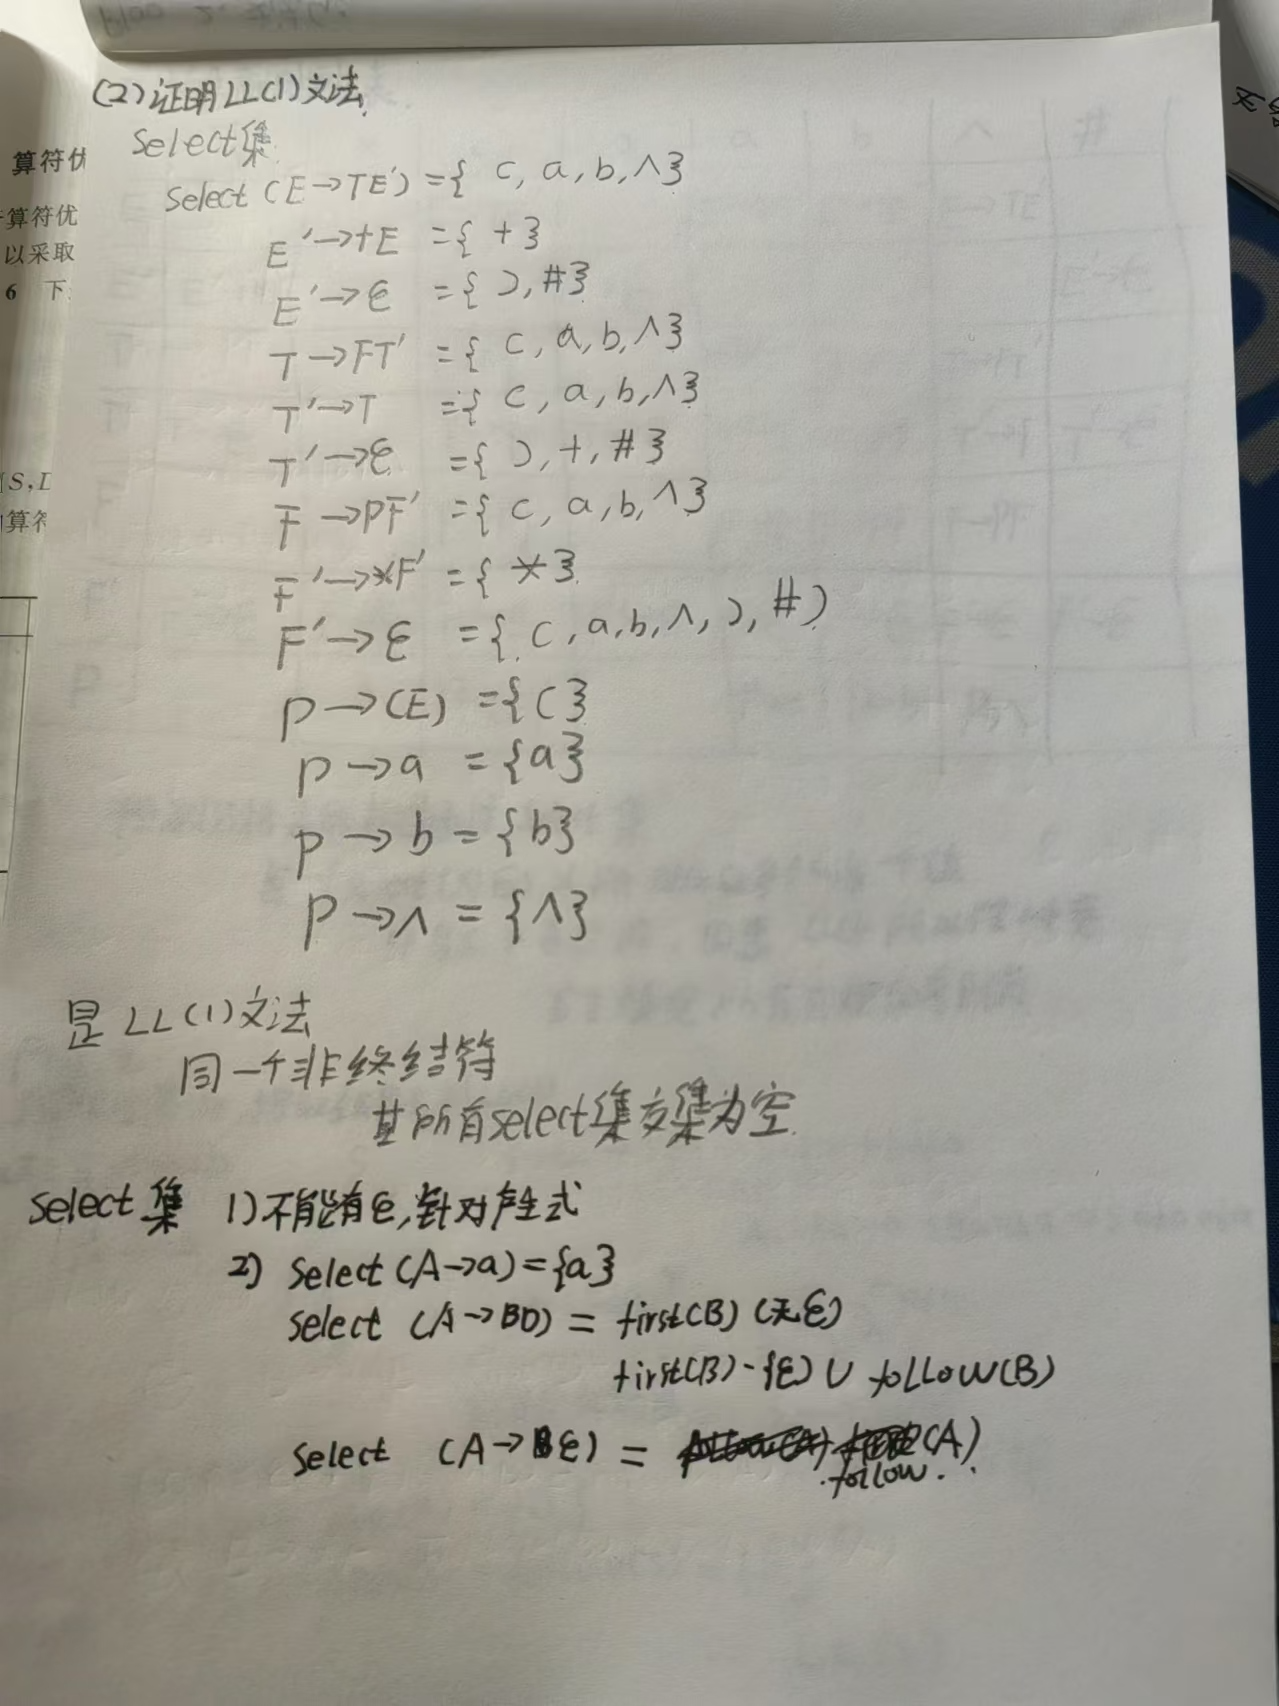 (2)证明LL(1)文法.
Select集
Select (E→TE′) ={ (, a, b, ∧}
E′→+E ={ +}
E′→ε ={ ), #}
T→FT′ ={ (, a, b, ∧}
T′→T ={ (, a, b, ∧}
T′→ε ={ ), +, #}
F→PF′ ={ (, a, b, ∧}
F′→*F′ ={ *}
F′→ε ={ (, a, b, ∧, ), #}
P→(E) ={(}
P→a ={a}
P→b ={b}
P→∧ ={∧}
是 LL(1)文法
同一个非终结符
其所有select集交集为空.
Select 集 1)不能有ε,针对产生式
2) Select(A→a)={a}
Select (A→BD) = first(B) (无ε)
first(B)-{ε} ∪ follow(B)
Select (A→ε) = (A)
follow.
算符优
算符优
以采取
6 下
S, L
算符